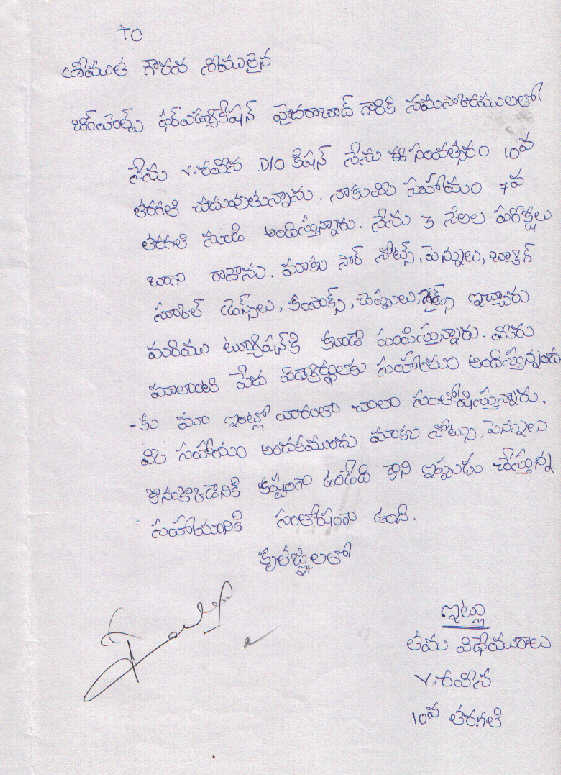 TO
శ్రీయుత గౌరవ శ్రీయులైన
ఫౌండేషన్ హైదరాబాద్ గారికి నమస్కారములతో
నేను Y. రవీన D/O కిషన్ నేను ఈ సంవత్సరం 10వ
తరగతి చదువుతున్నాను. నాకు మీరు సహాయం 7వ
తరగతి నుండి అందిస్తున్నారు. నేను 3 నెలల పరీక్షలు
బాగా రాసాను. మాకు సార్ నోట్స్, పెన్నులు, బ్యాగ్
స్కూల్ డ్రెస్‌లు, చెప్పులు, గైడ్స్ ఇచ్చారు
మరియు ట్యూషన్‌కి కూడా పంపిస్తున్నారు. వారు
మాలాంటి పేద విద్యార్థులకు సహాయం అందిస్తున్నందు
-కు మా ఇంట్లో వారంతా చాలా సంతోషిస్తున్నారు.
మీ సహాయం అందకముందు మాకు నోట్సు, పెన్నులు
కొనుక్కోడానికి కష్టంగా ఉండేది కాని ఇప్పుడు చేస్తున్న
సహాయానికి సంతోషంగా ఉంది.
కృతజ్ఞతలతో
ఇట్లు
తమ విధేయురాలు
Y. రవీన
10వ తరగతి